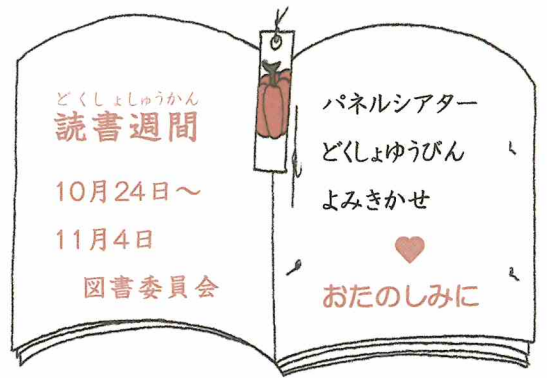 どくしょしゅうかん
読書週間
10月24日～
11月4日
図書委員会
パネルシアター
どくしょゆうびん
よみきかせ
おたのしみに